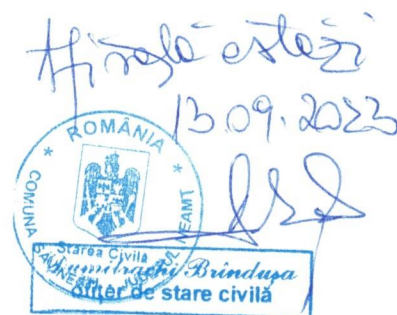 Afișată astăzi
13.09.2023
ROMÂNIA
COMUNA
JUDEȚUL NEAMȚ
Starea Civilă
Dumitrachi Brîndușa
ofițer de stare civilă